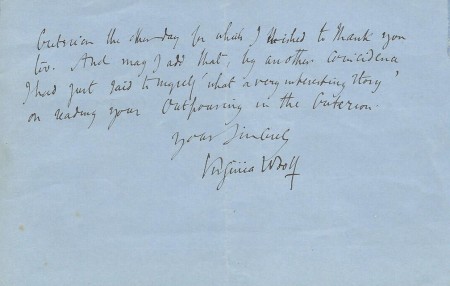 the other day for which I wished to thank you
too. And may I add that, by another coincidence
I had just said to myself 'what a very interesting story'
on reading your outpouring in the Criterion.
Yours sincerely
Virginia Woolf